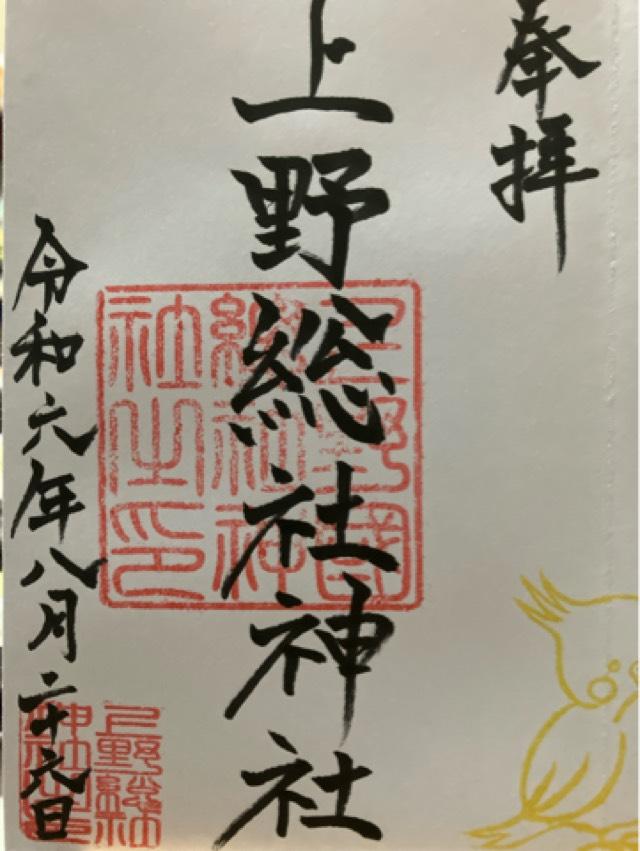 奉拝
上野総社神社
上野國
總社神
社之印
令和六年八月二十六日
上野総社
神社之印